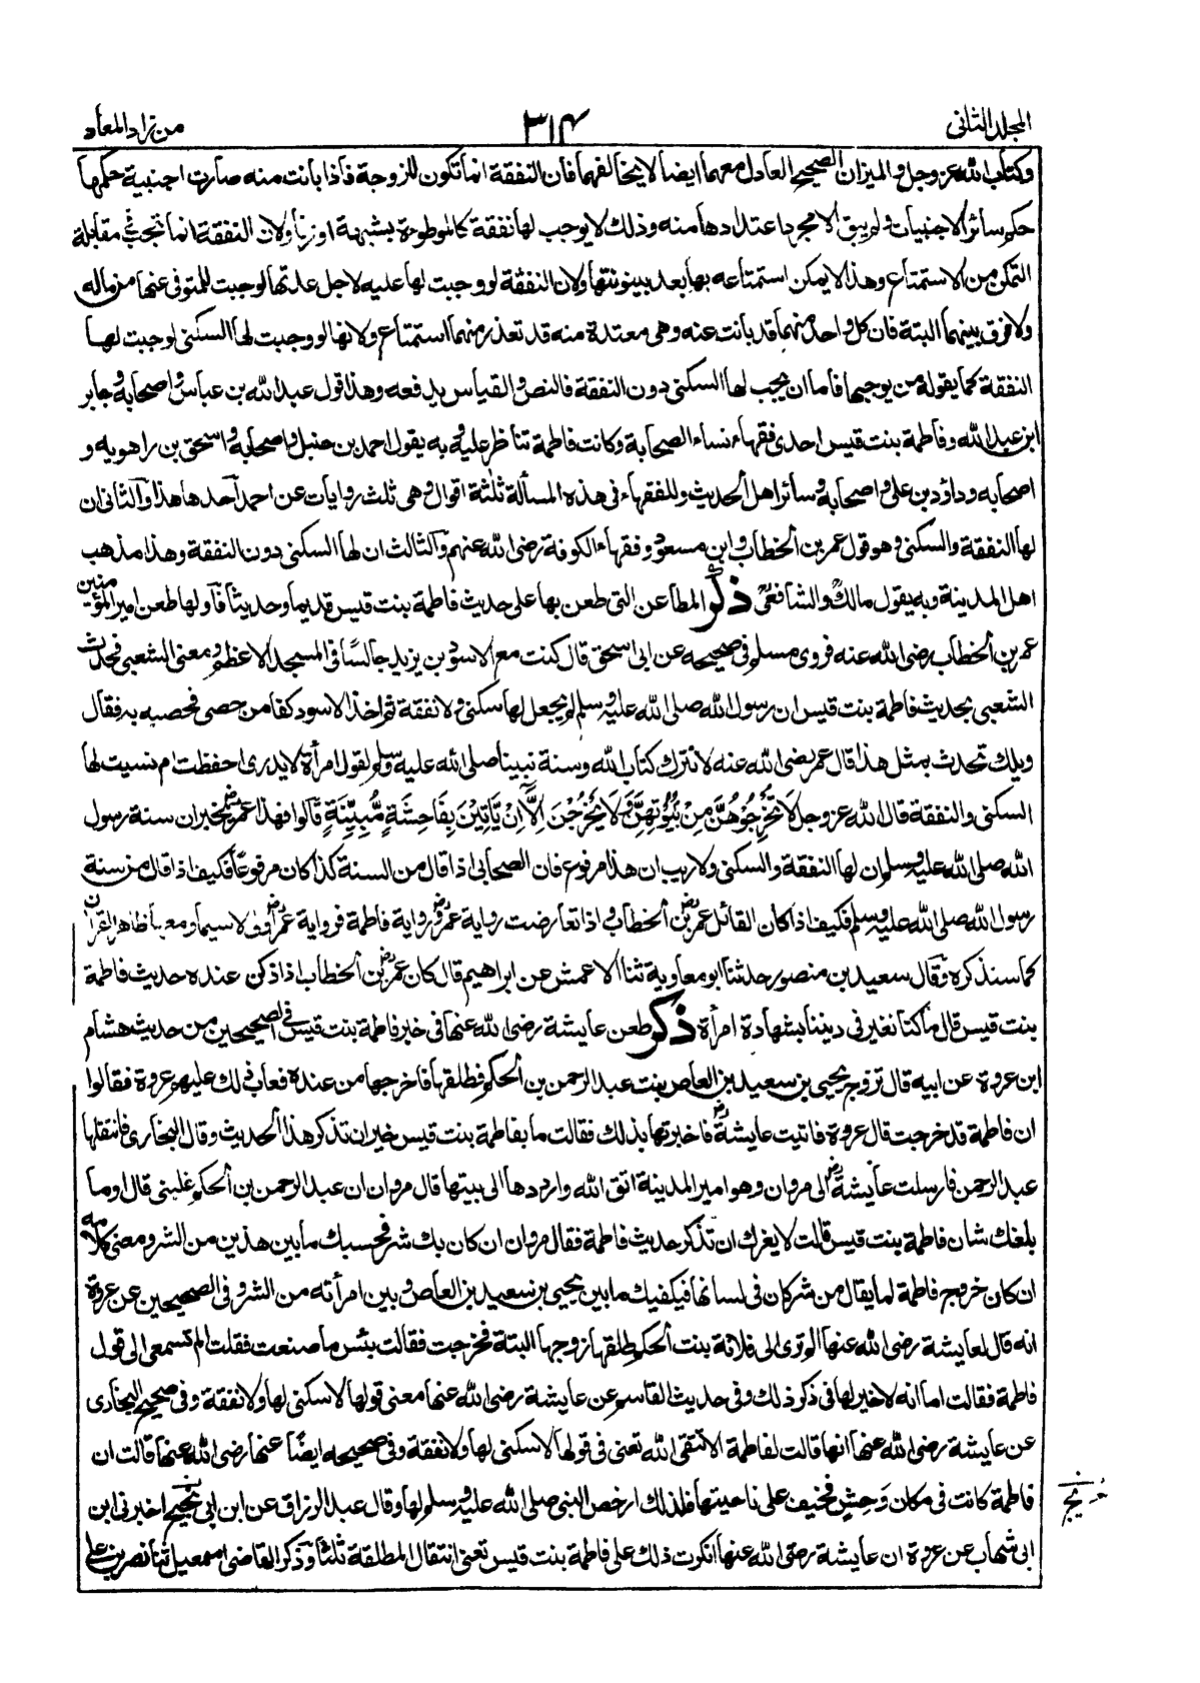 المجلد الثانى
٣١٤
من زاد المعاد
وكتاب الله عزوجل والميزان الصحيح العادل معهما ايضا لا يخالفهما فان النفقة انما تكون للزوجة فاذا بانت منه صارت اجنبية حكمها
حكم سائر الاجنبيات ولم يبق الا مجرد اعتدادها منه وذلك لا يوجب لها نفقة كالموطوءة بشبهة او زنا ولان النفقة انما تجب فى مقابلة
التمكن من الاستمتاع وهذا لا يمكن استمتاعه بها بعد بينونتها ولان النفقة لو وجبت لها عليه لاجل عدتها لوجبت للمتوفى عنها من ماله
ولا فرق بينهما البتة فان كل واحد منهما قد بانت عنه وهى معتدة منه قد تعذر منهما استمتاع ولانها لو وجبت لها السكنى لوجبت لها
النفقة كما يقوله من يوجبها فاما ان يجب لها السكنى دون النفقة فالنص والقياس يدفعه وهذا قول عبد الله بن عباس واصحابه وجابر
ابن عبد الله وفاطمة بنت قيس احدى فقهاء نساء الصحابة وكانت فاطمة تناظر عليه وبه يقول احمد بن حنبل واصحابه واسحق بن راهويه و
اصحابه وداؤد بن على واصحابه وسائر اهل الحديث وللفقهاء فى هذه المسألة ثلثة اقوال وهى ثلث روايات عن احمد آحدها هذا والثانى ان
لها النفقة والسكنى وهو قول عمر بن الخطاب وابن مسعود وفقهاء الكوفة رضى الله عنهم والثالث ان لها السكنى دون النفقة وهذا مذهب
اهل المدينة وبه يقول مالك والشافعى ذكر المطاعن التى طعن بها على حديث فاطمة بنت قيس قديما وحديثا فاولها طعن امير المؤمنين
عمر بن الخطاب رضى الله عنه فروى مسلم فى صحيحه عن ابى اسحق قال كنت مع الاسود بن يزيد جالسا فى المسجد الاعظم ومعنى الشعبى فحدث
الشعبى بحديث فاطمة بنت قيس ان رسول الله صلى الله عليه وسلم لم يجعل لها سكنى ولا نفقة ثم اخذ الاسود كفا من حصى فحصبه به فقال
ويلك تحدث بمثل هذا قال عمر رضى الله عنه لا نترك كتاب الله وسنة نبينا صلى الله عليه وسلم لقول امرأة لا يدرى احفظت ام نسيت لها
السكنى والنفقة قال الله عزوجل لَا تُخْرِجُوْهُنَّ مِنْ بُيُوْتِهِنَّ وَلَا يَخْرُجْنَ اِلَّا اَنْ يَّاْتِيْنَ بِفَاحِشَةٍ مُّبَيِّنَةٍ قالوا فهذا عمر يخبر ان سنة رسول
الله صلى الله عليه وسلم ان لها النفقة والسكنى ولا ريب ان هذا مرفوع فان الصحابى اذا قال من السنة كذا كان مرفوعا فكيف اذا قال من سنة
رسول الله صلى الله عليه وسلم فكيف اذا كان القائل عمر بن الخطاب واذا تعارضت رواية عمر ورواية فاطمة فرواية عمر اولى لا سيما ومعها ظاهر القران
كما سنذكره وقال سعيد بن منصور حدثنا ابو معاوية ثنا الاعمش عن ابراهيم قال كان عمر بن الخطاب اذا ذكر عنده حديث فاطمة
بنت قيس قال ما كنا نغير فى ديننا بشهادة امرأة ذكر طعن عايشة رضى الله عنها فى خبر فاطمة بنت قيس فى الصحيحين من حديث هشام
ابن عروة عن ابيه قال تزوج يحيى بن سعيد بن العاص بنت عبد الرحمن بن الحكم فطلقها فاخرجها من عنده فعاب ذلك عليهم عروة فقالوا
ان فاطمة قد خرجت قال عروة فاتيت عايشة فاخبرتها بذلك فقالت ما بفاطمة بنت قيس خير ان تذكر هذا الحديث وقال البخارى فانتقلها
عبد الرحمن فارسلت عايشة الى مروان وهو امير المدينة اتق الله وارددها الى بيتها قال مروان ان عبد الرحمن بن الحكم غلبنى قال اوما
بلغك شان فاطمة بنت قيس قالت لا يغرك ان تذكر حديث فاطمة فقال مروان ان كان بك شر فحسبك ما بين هذين من الشر ومعنى كلامه
ان كان خروج فاطمة لما يقال من شر كان فى لسانها فيكفيك ما بين يحيى بن سعيد بن العاص وبين امرأته من الشر وفى الصحيحين عن عروة
انه قال لعايشة رضى الله عنها الم ترى الى فلانة بنت الحكم طلقها زوجها البتة فخرجت فقالت بئس ما صنعت فقلت الم تسمعى الى قول
فاطمة فقالت اما انه لا خير لها فى ذكر ذلك وفى حديث القاسم عن عايشة رضى الله عنها معنى قولها لا سكنى لها ولا نفقة وفى صحيح البخارى
عن عايشة رضى الله عنها انها قالت لفاطمة الا تتقى الله تعنى فى قولها لا سكنى لها ولا نفقة وفى صحيحه ايضا عنها رضى الله عنها قالت ان
فاطمة كانت فى مكان وَحِشٍ فخيف على ناحيتها فلذلك ارخص النبى صلى الله عليه وسلم لها وقال عبد الرزاق عن ابن ابى نجيح اخبرنى ابن
ابى شهاب عن عروة ان عايشة رضى الله عنها انكرت ذلك على فاطمة بنت قيس تعنى انتقال المطلقة ثلثا وذكر القاضى اسمعيل ثنا نصر بن على